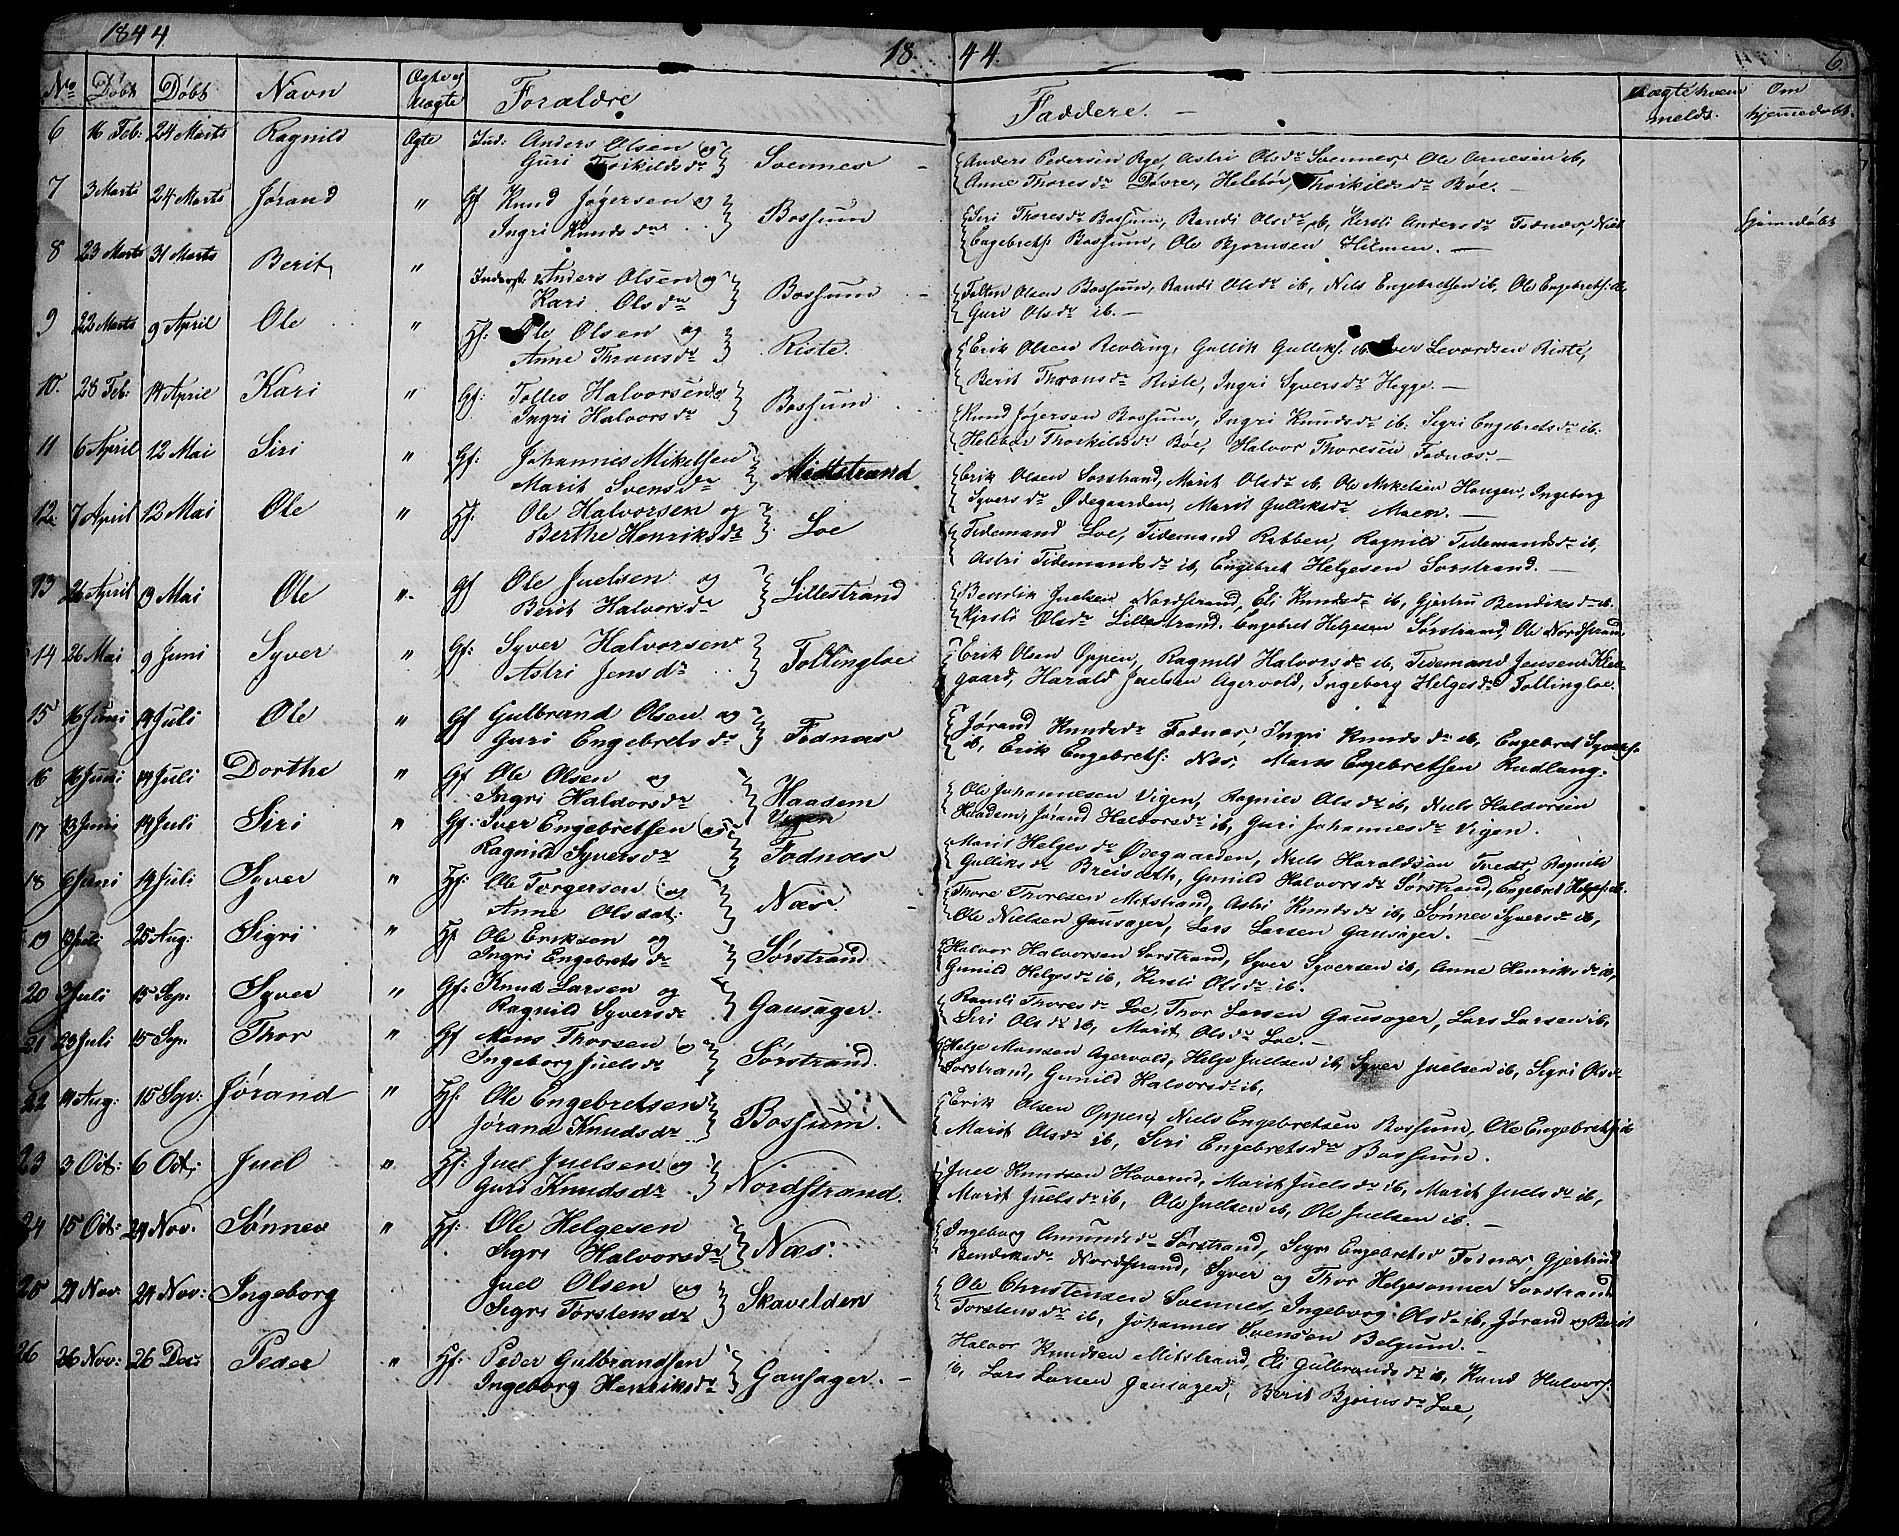 1844
18 44. 6.
No Døbt Døbt Navn Ægte el Uægte Forældre Faddere. Uægte hvem melds. Om hjemedøbt.
6 16 Feb: 24 Marts Ragnild Ægte Ind: Anders Olsen og Svennes Anders Pedersen Rye, Astri Olsdr Svennes, Ole Arnesen ib,
Guri Torkildsdr Anne Thoresdr Døvre, Thorkildsdr Bøe.
7 3 Marts 24 Marts Jørand " Gf Knud Jøgersen og Bossum Siri Thoresdr Bossum, Randi Olsdr ib, Kersti Andersdr Fodnæs, Niels hjemedøbt
Ingri Knudsdr Engebrets: Bossum, Ole Bjørnsen Hilmen.
8 23 Marts 31 Marts Berit " Inderst: Anders Olsen og Bossum Tosten Olsen Bossum, Randi Olsdr ib, Nils Engebretsen ib, Ole Engebrets: ib,
Kari Olsdr Guri Olsdr ib.
9 22 Marts 9 April Ole " Hf: Ole Olsen og Riste. Erik Olsen Revling, Gullik Gulliks: ib, Iver Levordsen Riste,
Anne Thronsdr Berit Thronsdr Riste, Ingri Syversdr Hegge.
10. 28 Feb: 14 April Kari " Gf: Tolles Halvorsen og Bossum Knud Jøgersen Bossum, Ingri Knudsdr ib: Sigri Engebretsdr ib:
Ingri Halvorsdr Thorkildsdr Bøe, Halvor Thoresen Fodnæs.
11 6 April 12 Mai Siri " Gf: Johannes Mikelsen Midtstrand Erik Olsen Sorstrand, Marit Olsdr ib, Ole Mikelsen Haugen, Ingeborg
Marit Svensdr Syversdr Ødegaarden, Marit Gulliksdr Moen.
12 7 April 12 Mai Ole " Hf: Ole Halvorsen og Loe Tidemand Loe, Tidemand Rabben, Ragnild Tidemandsdr ib,
Berthe Henriksdr Astri Tidemandsdr ib, Engebret Helgesen Sorstrand.
13 26 April 19 Mai Ole " Gf Ole Juelsen og Lillestrand Bendik Juelsen Nordstrand, Eli Knudsdr ib, Gjertru Bendiksdr ib.
Berit Halvorsdr Kjersti Olsdr Lillestrand. Engebret Helgesen Sørstrand, Ole Nordstrand
14 26 Mai 9 Juni Syver " Gf: Syver Halvorsen Tollingloe Erik Olsen Oppen, Ragnild Halvorsdr ib, Tidemand Jensen
Astri Jensdr gaard, Harald Juelsen Agervold, Ingeborg Helgesdr Tollingloe.
15 16 Juni 14 Juli Ole " Gf Gulbrand Olsen og Fodnæs Jørand Knudsdr Fodnæs, Ingri Knudsdr ib, Engebret Syvers:
Guri Engebretsdr ib, Erik Engebrets: Næs, Marit Engebretsen Rudlang.
16 16 Juni 14 Juli Dorthe " Gf Ole Olsen og Haadem Ole Johannesen Vigen, Ragnild Olsdr ib, Niels Halvorsen
Ingri Halvorsdr Vigen Haadem, Jørand Halvorsdr ib, Guri Johannesdr Vigen.
17 13 Juni 14 Juli Siri " Gf: Iver Engebretsen og Fodnæs Marit Helgesdr Ødegaarden, Niels Haraldsøn Tvedt, Ragnild
Ragnild Syversdr Gulliksdr Gunild Halvorsdr Sørstrand, Engebret Helges: ib.
18 6 Juni 14 Juli Syver " Hf: Ole Torgersen og Næs. Thore Thoresen Mitstrand, Astri Knudsdr ib, Sønnev Syversdr ib,
Anne Olsdat: Ole Nielsen Gausager, Lars Larsen Gausager.
19 Juli 25 Aug: Sigri " Hf Ole Erikson og Sørstrand Halvor Halvorsen Sorstrand, Syver Syversen ib, Anne Henriksdr ib,
Ingri Engebretsdr Gunild Helgesdr ib, Kersti Olsdr ib.
20 3 Juli 15 Sep. Syver " Gf: Knud Larsen og Gausager. Randi Thoresdr Loe, Thor Larsen Gausager, Lars Larsen ib,
Ragnild Syversdr Siri Olsdr ib, Marit Olsdr Loe.
21 23 Juli 15 Sep. Thor " Gf Mons Thorsen og Sørstrand. Helge Monsen Agervold, Helge Juelsen ib, Syver Juelsen ib, Sigri Olsdr
Ingeborg Juelsdr Sorstrand, Gunild Halvorsdr ib,
22 14 Aug: 15 Sep: Jørand " Hf. Ole Engebretsen Bossum. Erik Olsen Oppen, Niels Engebretsen Bossum, Ole Engebrets: ib
Jørand Knudsdr Marit Olsdr ib, Siri Engebretsdr Bossum.
23 3 Oct: 6 Oct: Juel " Hf: Juel Juelsen og Nordstrand. Juel Knudsen Hoverud, Marit Juelsdr ib, Marit Juelsdr ib,
Guri Knudsdr Marit Juelsdr ib, Ole Juelsen ib, Ole Juelsen ib.
24 15 Oct: 24 Nov: Sønnev " Hf: Ole Helgesen Næs. Ingeborg Amundsdr Sørstrand, Sigri Engebretsd Fodnæs, Gjertrud
Sigri Halvorsdr Bendiksdr Nordstrand, Syver og Thor Helgesønner Sorstrand
25 21 Nov: 24 Nov: Ingeborg Juel Olsen og Skavelden Ole Christensen Svennes, Ingeborg Olsdr ib, Jørand og Berit
Sigri Torstensdr Torstensdr ib, Johannes Svensen Belgum.
26 26 Nov: 26 Dec: Peder " Hf: Peder Gulbrandsen Gausager. Halvor Knudsen Mitstrand, Eli Gulbrandsdr ib, Knud Halvors:
Ingeborg Henriksdr ib, Lars Larsen Gausager, Berit Bjørnsdr Loe,